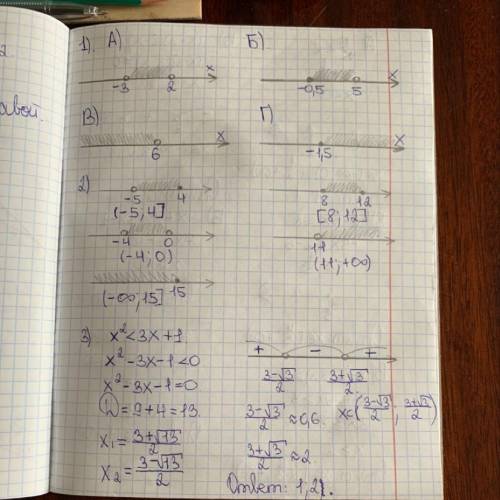 2
авой.
1). А)
Б)
-3 2 x
-0,5 5 x
В)
Г)
6 x
-1,5 x
2)
-5 4
(-5; 4]
8 12
[8; 12]
-4 0
(-4; 0)
11
(11; +∞)
15
(-∞; 15]
3) x² < 3x + 1
x² - 3x - 1 < 0
x² - 3x - 1 = 0
D = 9 + 4 = 13
x₁ = (3+√13)/2
x₂ = (3-√13)/2
+ - +
(3-√3)/2 (3+√3)/2
(3-√3)/2 ≈ 0,6. x∈((3-√3)/2; (3+√3)/2)
(3+√3)/2 ≈ 2
Ответ: 1,2